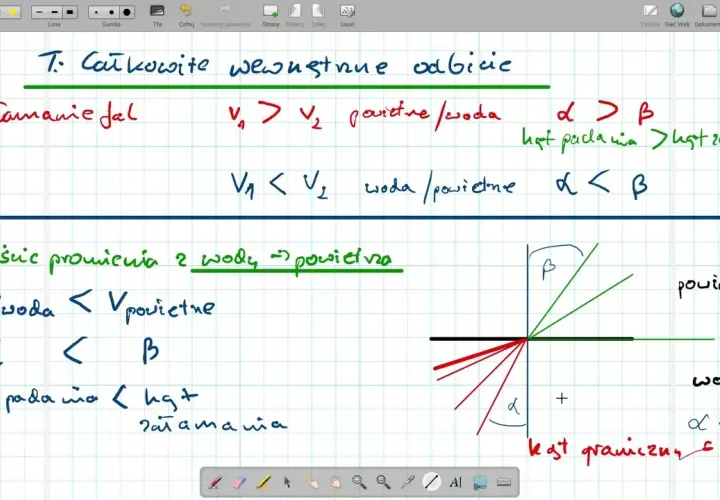 Linia Gumka Tło Cofnij Strony Dalej Usuń Sieć Web Dokument
T: Całkowite wewnętrzne odbicie
amanie fal V1 > V2 powietrze/woda α > β
kąt padania > kąt za
V1 < V2 woda/powietrze α < β
ście promienia z wody → powietrza
woda < Vpowietrze
< β
padania < kąt
załamania
β
powie
α
wo
α
kąt graniczny
AI